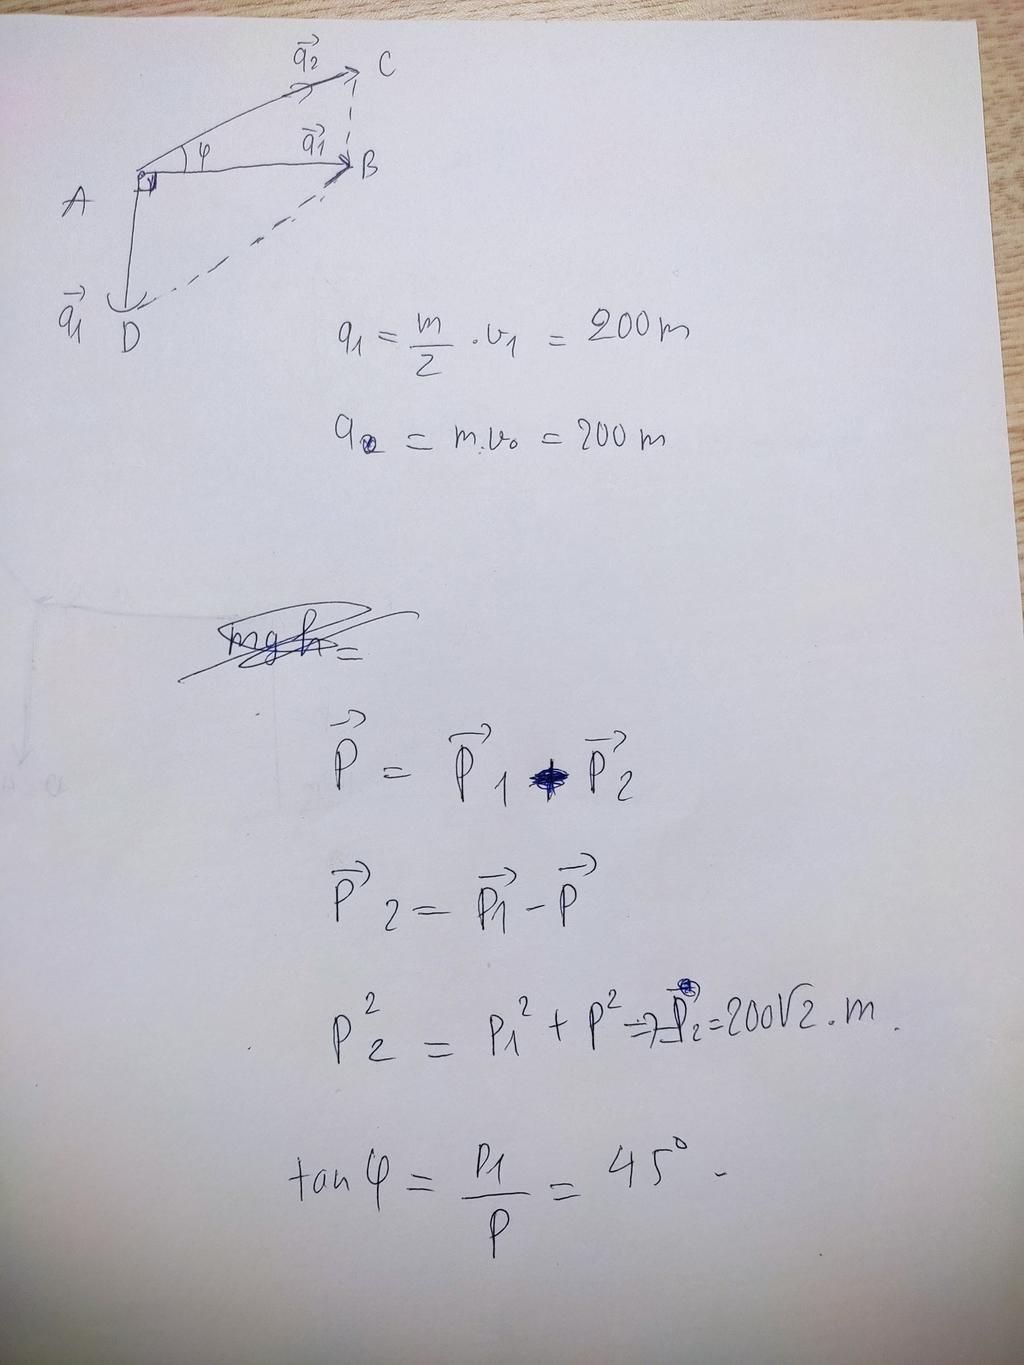 q⃗2 C
φ q⃗1 B
A
q⃗1 D
q1 = m/2 . v1 = 200m
q2 = m.v0 = 200m
mgh =
P⃗ = P⃗1 + P⃗2
P⃗2 = P⃗1 - P⃗
P2² = P1² + P² => P2 = 200√2 . m.
tan φ = P1/P = 45° .